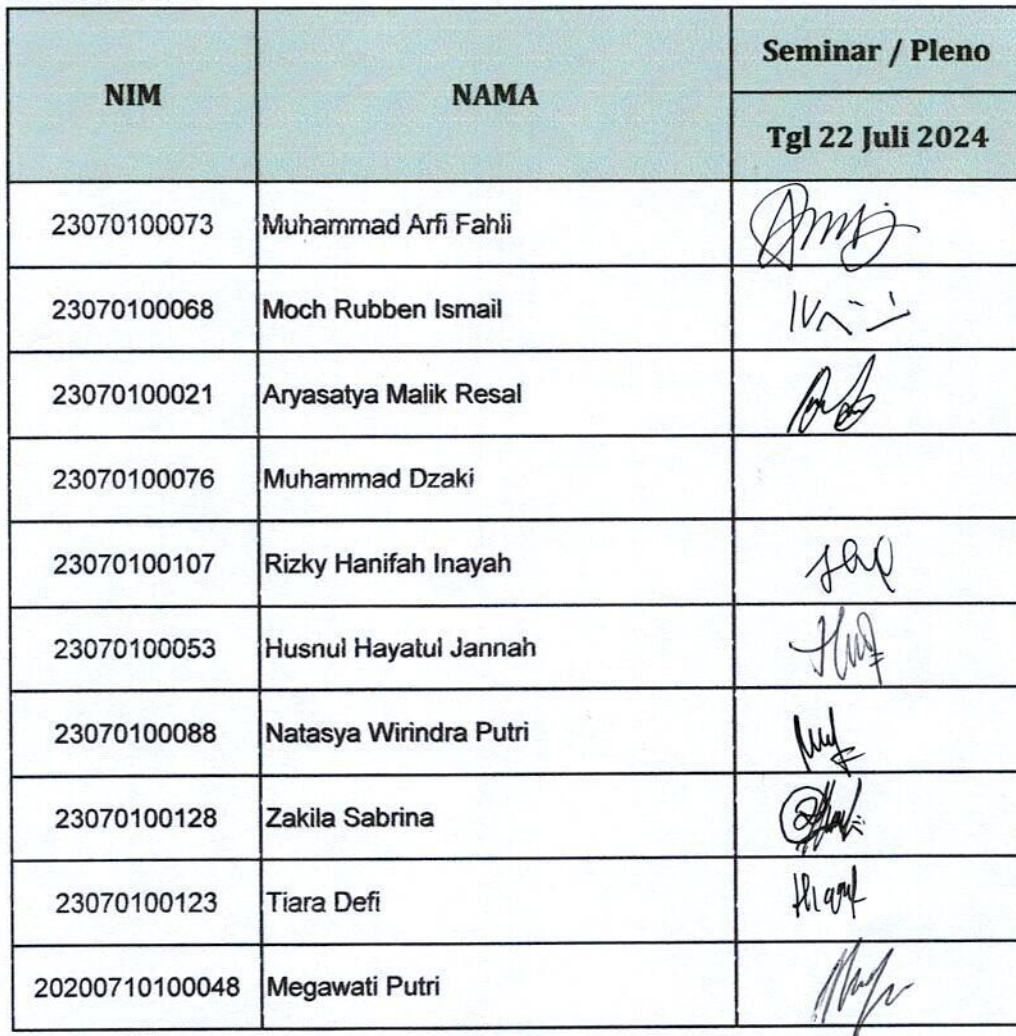 NIM NAMA Seminar / Pleno
Tgl 22 Juli 2024
23070100073 Muhammad Arfi Fahli
23070100068 Moch Rubben Ismail
23070100021 Aryasatya Malik Resal
23070100076 Muhammad Dzaki
23070100107 Rizky Hanifah Inayah
23070100053 Husnul Hayatul Jannah
23070100088 Natasya Wirindra Putri
23070100128 Zakila Sabrina
23070100123 Tiara Defi
20200710100048 Megawati Putri